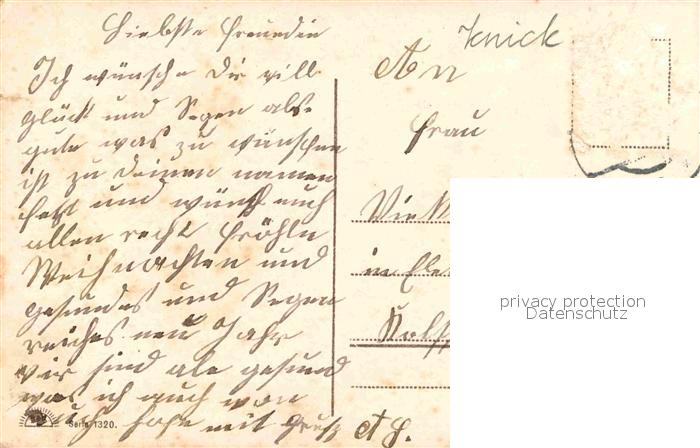 Liebste Freundin
Ich wünsche Dir vill
glück und Segen als
gute was zu wünschen
ist zu Deinen namen
fest und wünsch euch
allen recht fröhln
Weihnachten und
gesundes und Segen
reiches neu Jahr
wir sind ale gesund
was ich auch von
Euch hofe mit Gruß
Serie 1320.
Knick
An
Frau
in
privacy protection
Datenschutz